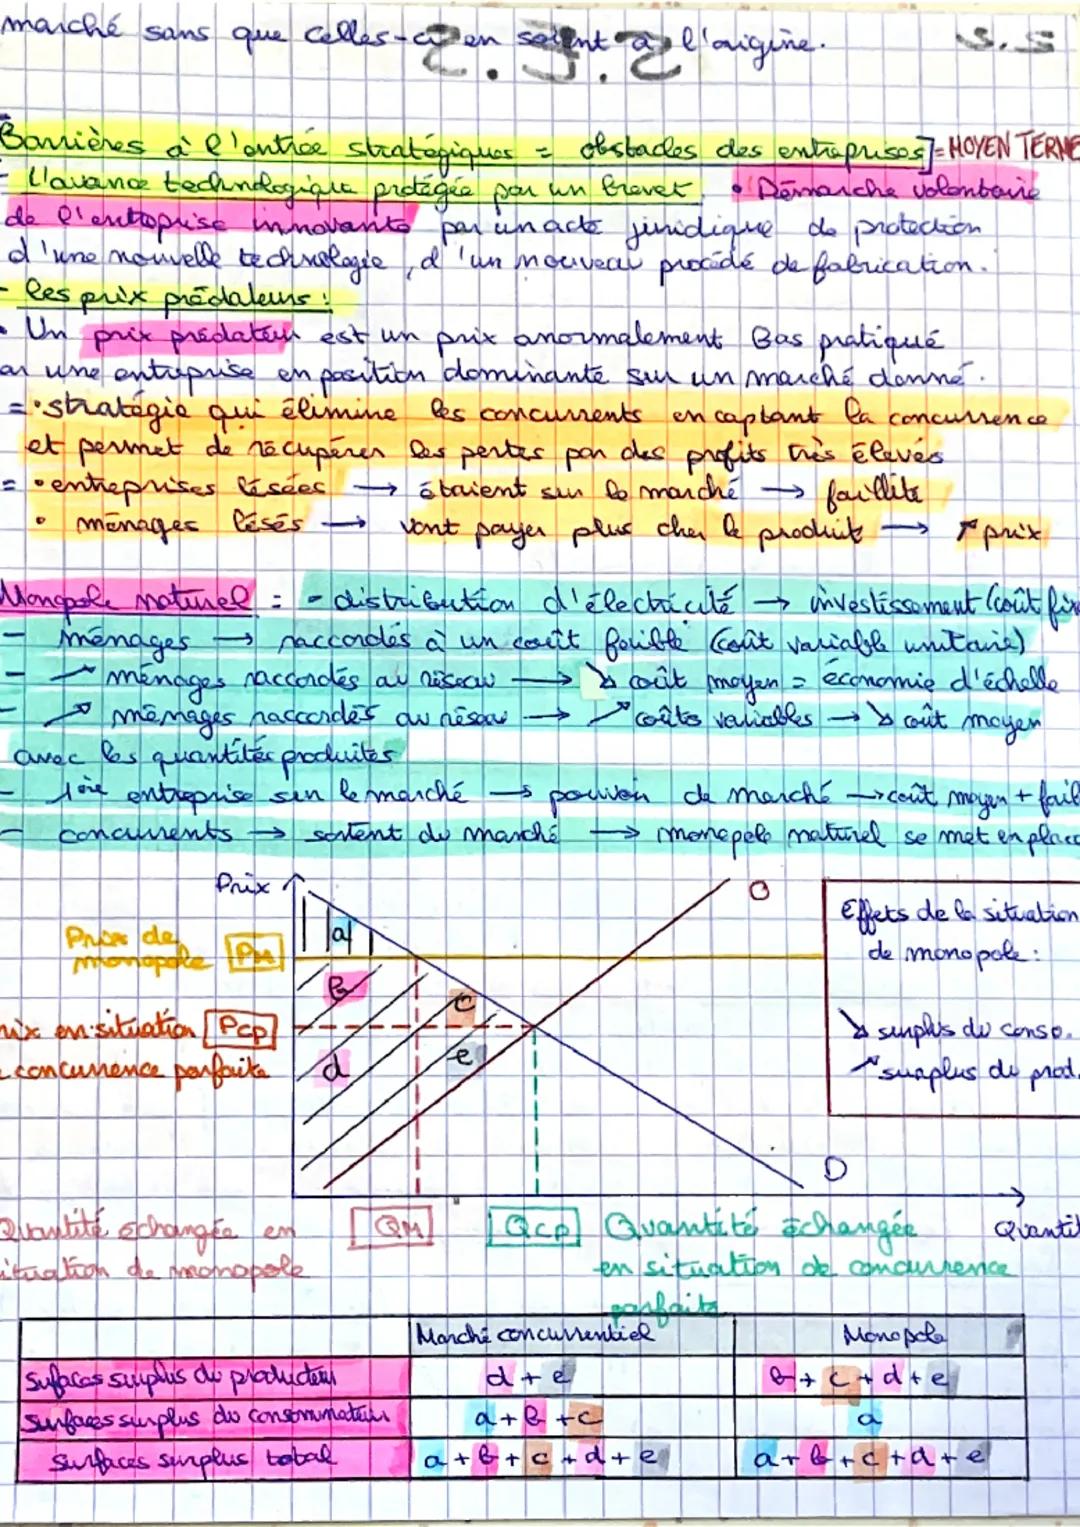 marché sans que celles-ci en soient à l'origine.
S.E.S
Barrières à l'entrée stratégiques = obstacles des entreprises] = MOYEN TERME
- L'avance technologique protégée par un brevet • Démarche volontaire
de l'entreprise innovante par un acte juridique de protection
d'une nouvelle technologie, d'un nouveau procédé de fabrication.
- les prix prédateurs :
• Un prix prédateur est un prix anormalement Bas pratiqué
ar une entreprise en position dominante sur un marché donné.
= • stratégie qui élimine les concurrents en captant la concurrence
et permet de récupérer les pertes par des profits très élevés
= • entreprises lésées → étaient sur le marché → faillite
• ménages lésés → vont payer plus cher le produit → ↗ prix
Monopole naturel : - distribution d'électricité → investissement (coût fix
- ménages → raccordés à un coût faible (coût variable unitaire)
- ↗ ménages raccordés au réseau → ↘ coût moyen = économie d'échelle
- ↗ ménages raccordés au réseau → ↗ coûts variables → ↘ coût moyen
avec les quantités produites
- 1ère entreprise sur le marché → pouvoir de marché → coût moyen + faib
- concurrents → sortent du marché → monopole naturel se met en place
Prix
O
a
Prix de
monopole PM
b
c
rix en situation Pcp
concurrence parfaite
d
e
D
Effets de la situation
de monopole :
↘ surplus du conso.
↗ surplus du prod.
Quantité échangée en
ituation de monopole
QM
Qcp
Quantité échangée
en situation de concurrence
parfaite
Quantit
Marché concurrentiel Monopole
Surfaces surplus du producteur d + e b + c + d + e
Surfaces surplus du consommateur a + b + c a
Surfaces surplus total a + b + c + d + e a + b + c + d + e